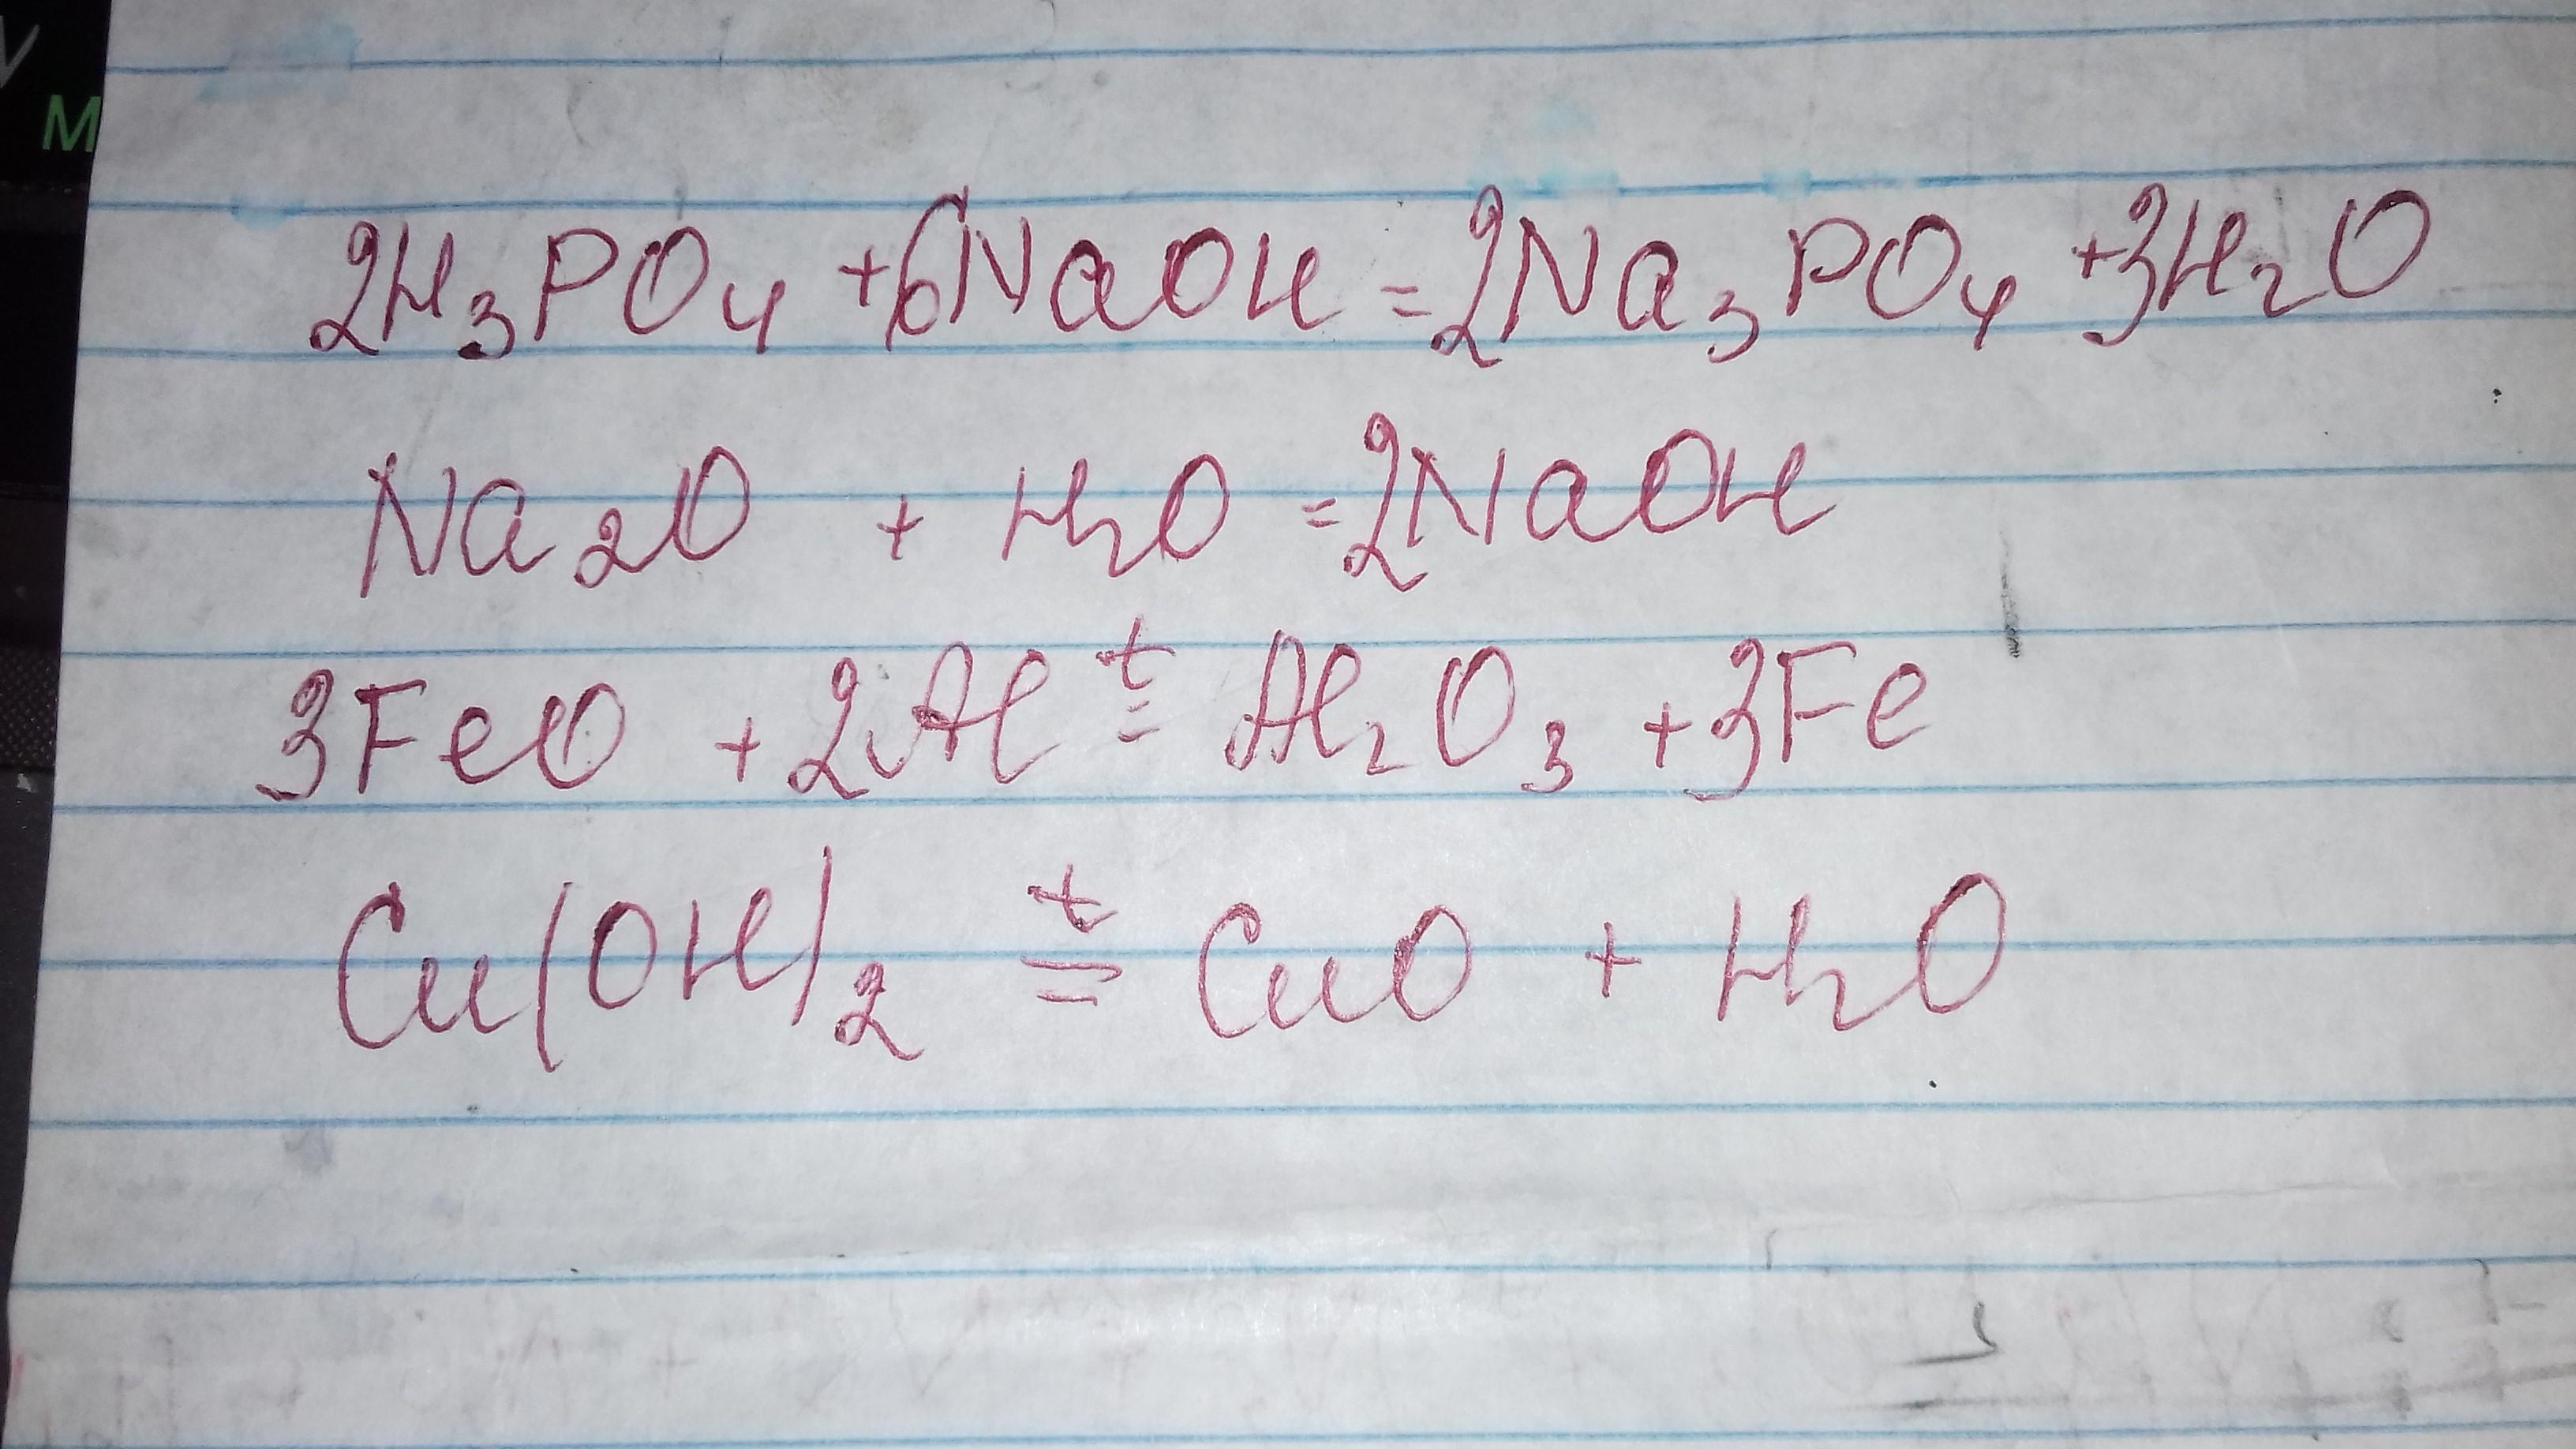 M
2H₃PO₄ + 6NaOH = 2Na₃PO₄ + 3H₂O
Na₂O + H₂O = 2NaOH
3FeO + 2Al t= Al₂O₃ + 3Fe
Cu(OH)₂ t= CuO + H₂O